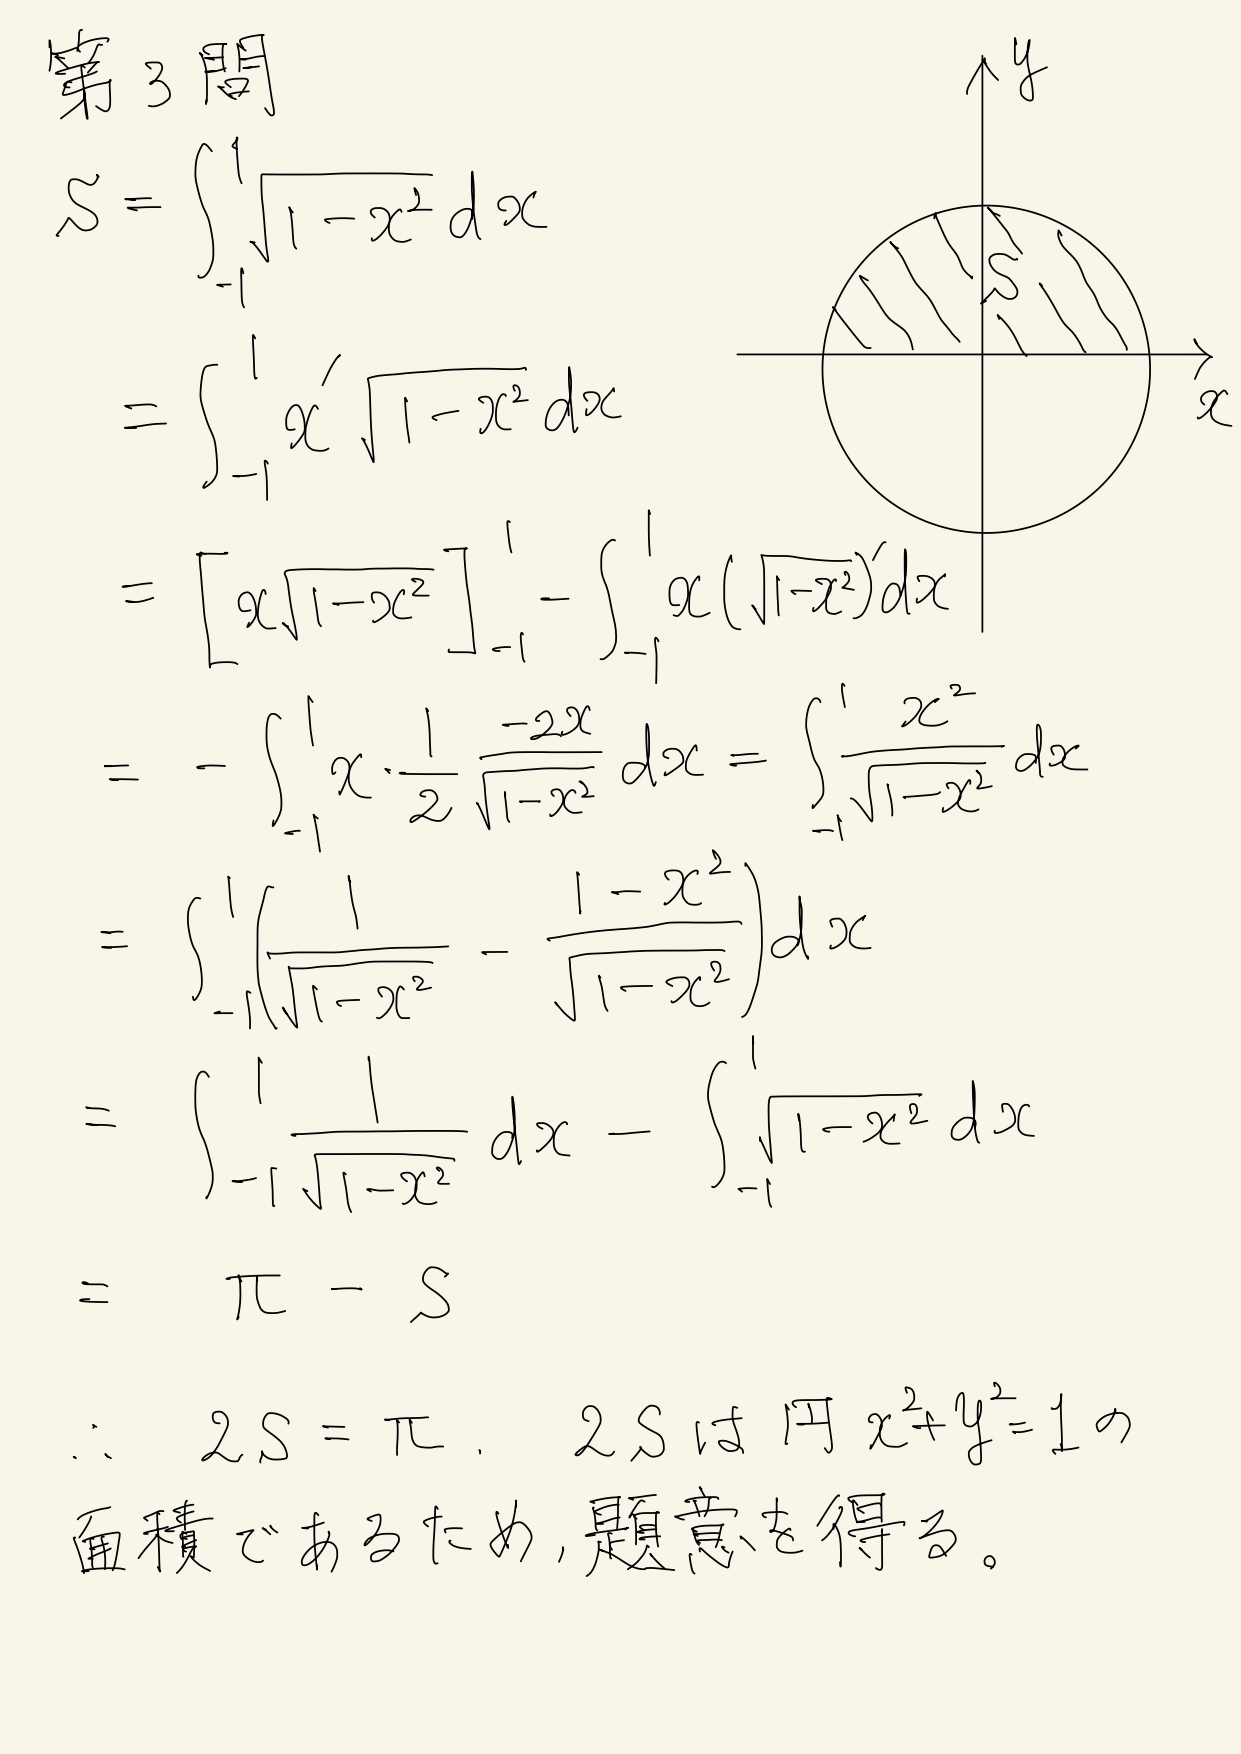 第3問
y
S = ∫_{-1}^{1} √(1-x²) dx
S
x
= ∫_{-1}^{1} x′ √(1-x²) dx
= [x√(1-x²)]_{-1}^{1} - ∫_{-1}^{1} x(√(1-x²))′dx
= - ∫_{-1}^{1} x・1/2 (-2x)/√(1-x²) dx = ∫_{-1}^{1} x²/√(1-x²) dx
= ∫_{-1}^{1} (1/√(1-x²) - (1-x²)/√(1-x²)) dx
= ∫_{-1}^{1} 1/√(1-x²) dx - ∫_{-1}^{1} √(1-x²) dx
= π - S
∴ 2S = π. 2Sは円x²+y²=1の
面積であるため,題意を得る。